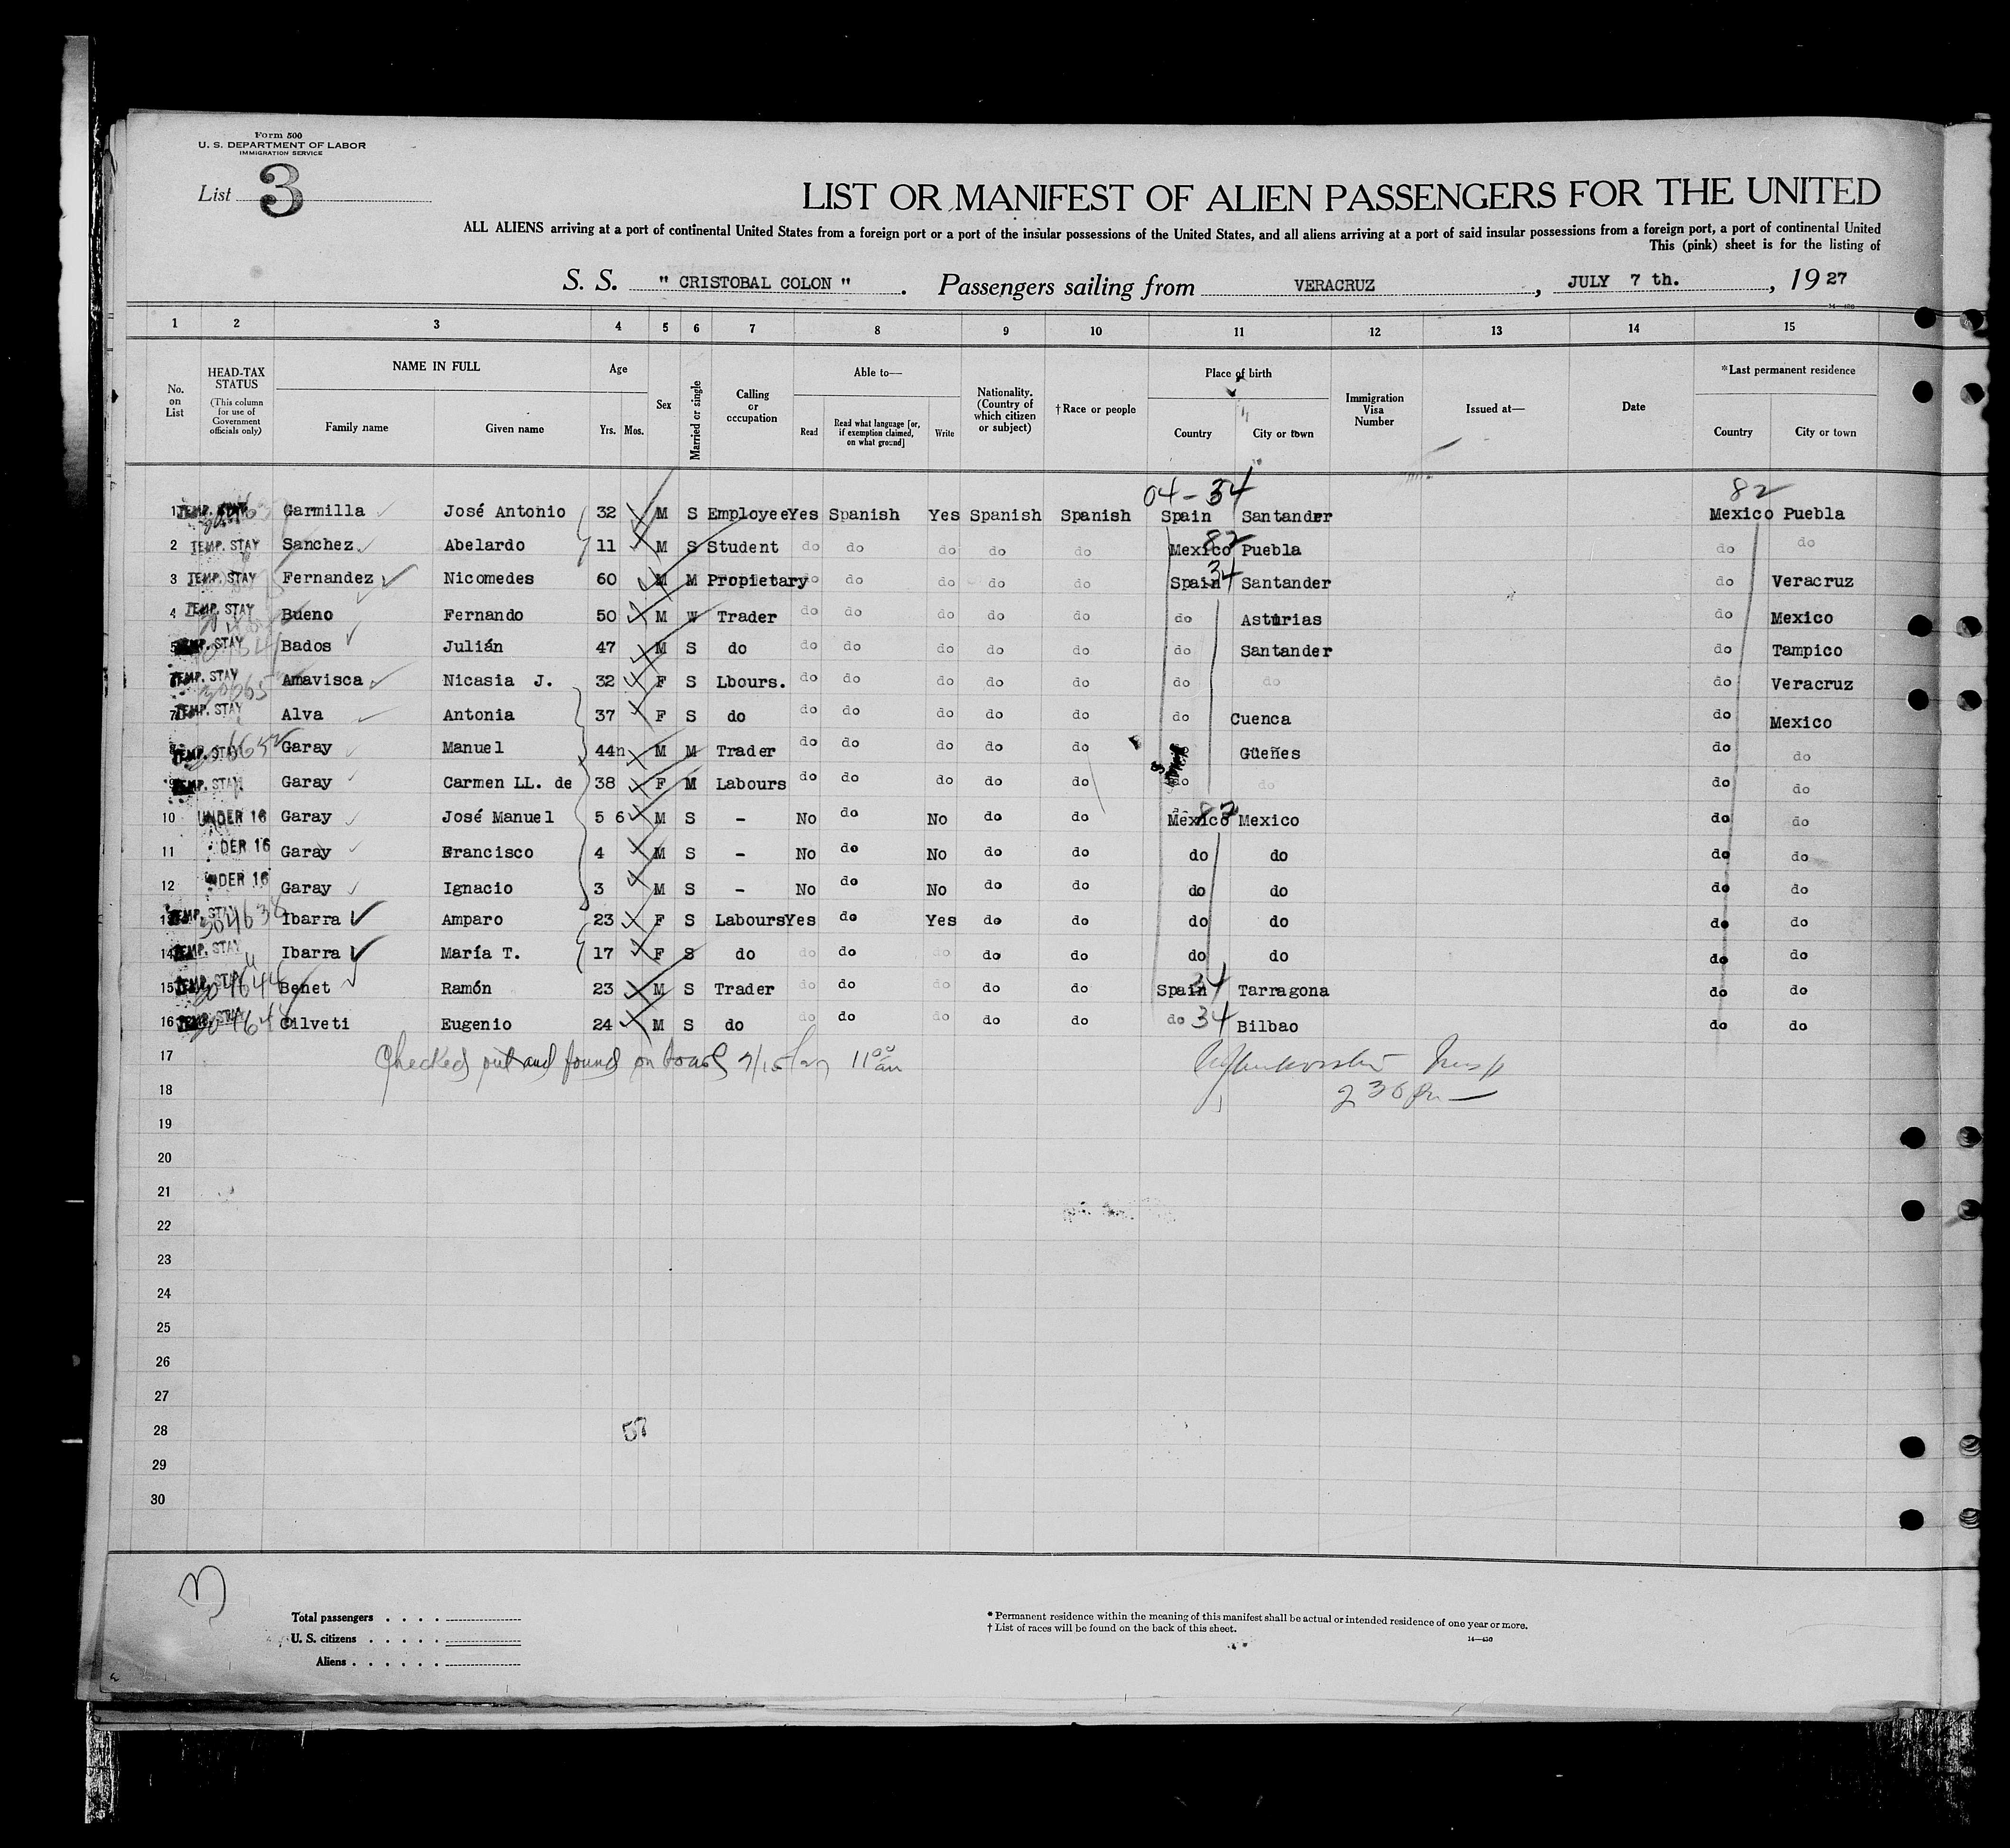 Form 500
U. S. DEPARTMENT OF LABOR
IMMIGRATION SERVICE
List 3
LIST OR MANIFEST OF ALIEN PASSENGERS FOR THE UNITED
ALL ALIENS arriving at a port of continental United States from a foreign port or a port of the insular possessions of the United States, and all aliens arriving at a port of said insular possessions from a foreign port, a port of continental United
This (pink) sheet is for the listing of
S. S. " CRISTOBAL COLON " . Passengers sailing from VERACRUZ , JULY 7 th. , 19 27
1 2 3 4 5 6 7 8 9 10 11 12 13 14 15
No. on List
HEAD-TAX STATUS
(This column for use of Government officials only)
NAME IN FULL
Family name Given name
Age
Yrs. Mos.
Sex
Married or single
Calling or occupation
Able to—
Read
Read what language [or, if exemption claimed, on what ground]
Write
Nationality. (Country of which citizen or subject)
†Race or people
Place of birth
Country City or town
Immigration Visa Number
Issued at—
Date
*Last permanent residence
Country City or town
04-34 82
1 TEMP. STAY Garmilla José Antonio 32 M S Employee Yes Spanish Yes Spanish Spanish Spain Santander Mexico Puebla
2 TEMP. STAY Sanchez Abelardo 11 M S Student do do do do do Mexico 82 Puebla do do
3 TEMP. STAY Fernandez Nicomedes 60 M M Propietary do do do do do Spain 34 Santander do Veracruz
4 TEMP. STAY Bueno Fernando 50 M W Trader do do do do do do Asturias do Mexico
5 TEMP. STAY Bados Julián 47 M S do do do do do do do Santander do Tampico
TEMP. STAY Amavisca Nicasia J. 32 F S Lbours. do do do do do do do do Veracruz
7 TEMP. STAY Alva Antonia 37 F S do do do do do do do Cuenca do Mexico
8 TEMP. STAY Garay Manuel 44 M M Trader do do do do do Güeñes do do
9 TEMP. STAY Garay Carmen LL. de 38 F M Labours do do do do do do do do do
10 UNDER 16 Garay José Manuel 5 6 M S - No do No do do Mexico 82 Mexico do do
11 DER 16 Garay Francisco 4 M S - No do No do do do do do do
12 NDER 16 Garay Ignacio 3 M S - No do No do do do do do do
13 TEMP. STAY 304638 Ibarra Amparo 23 F S Labours Yes do Yes do do do do do do
14 TEMP. STAY Ibarra María T. 17 F S do do do do do do do do do do
15 TEMP. STAY Benet Ramón 23 M S Trader do do do do do Spain 34 Tarragona do do
16 TEMP. STAY Oilveti Eugenio 24 M S do do do do do do do 34 Bilbao do do
17 Checked out and found on board 7/15/27 11 00 am
18 2 30 Pm
19
20
21
22
23
24
25
26
27
28 57
29
30
3
Total passengers . . . .
U. S. citizens . . . . .
Aliens . . . . . .
* Permanent residence within the meaning of this manifest shall be actual or intended residence of one year or more.
† List of races will be found on the back of this sheet.
14—430